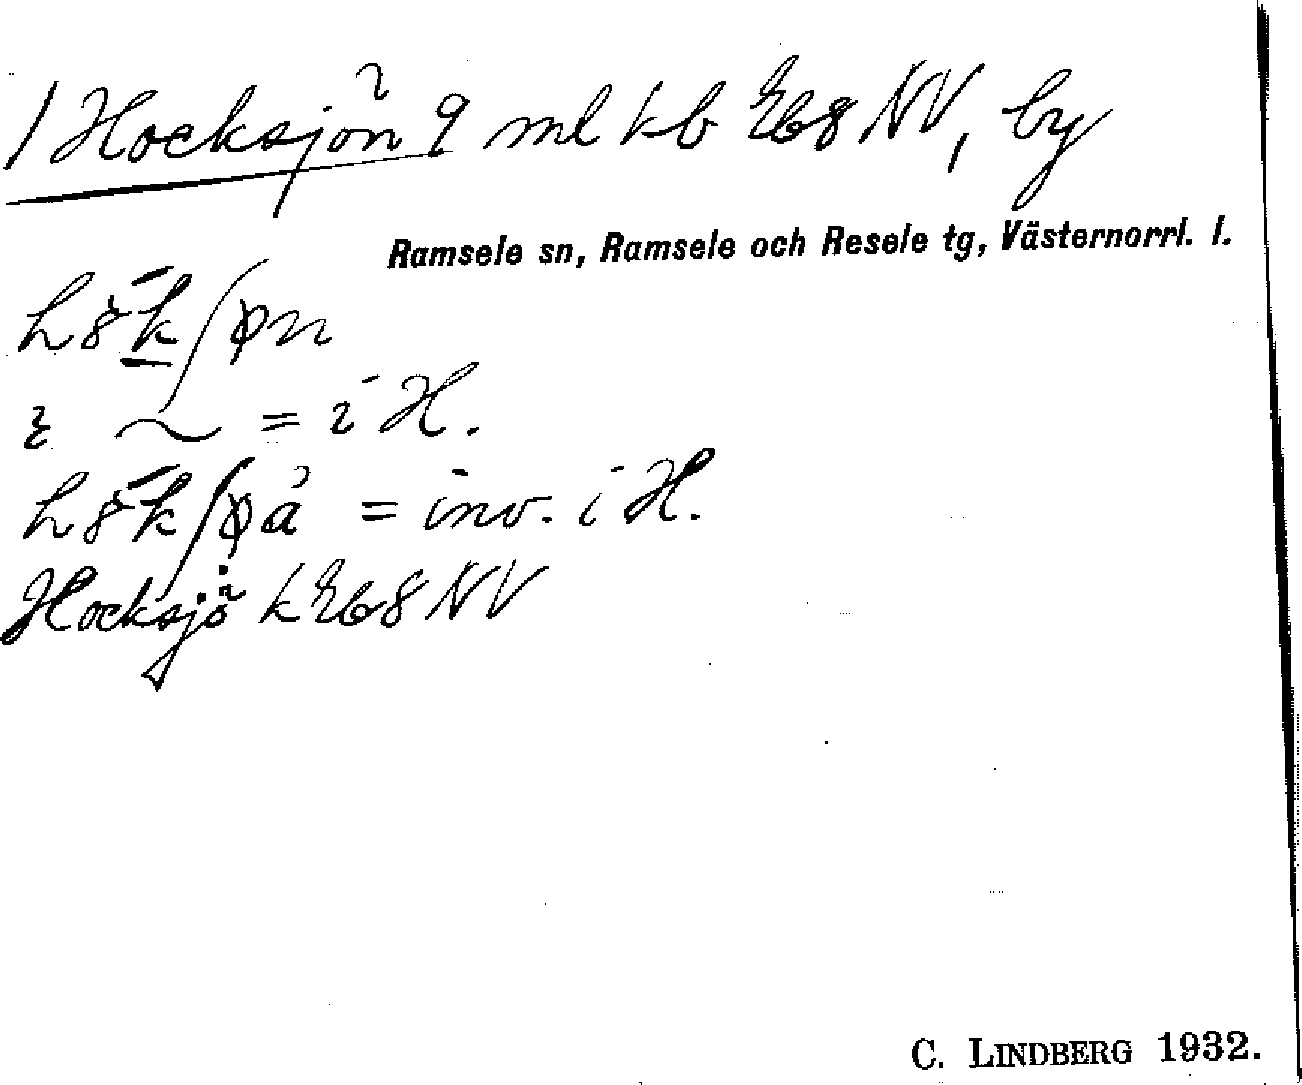 1 Hocksjön 9 ml kb Eb8 NV, by
Ramsele sn, Ramsele och Resele tg, Västernorrl. l.
= i H.
= inv. i H.
Hocksjö k Eb8 NV
C. LINDBERG 1932.